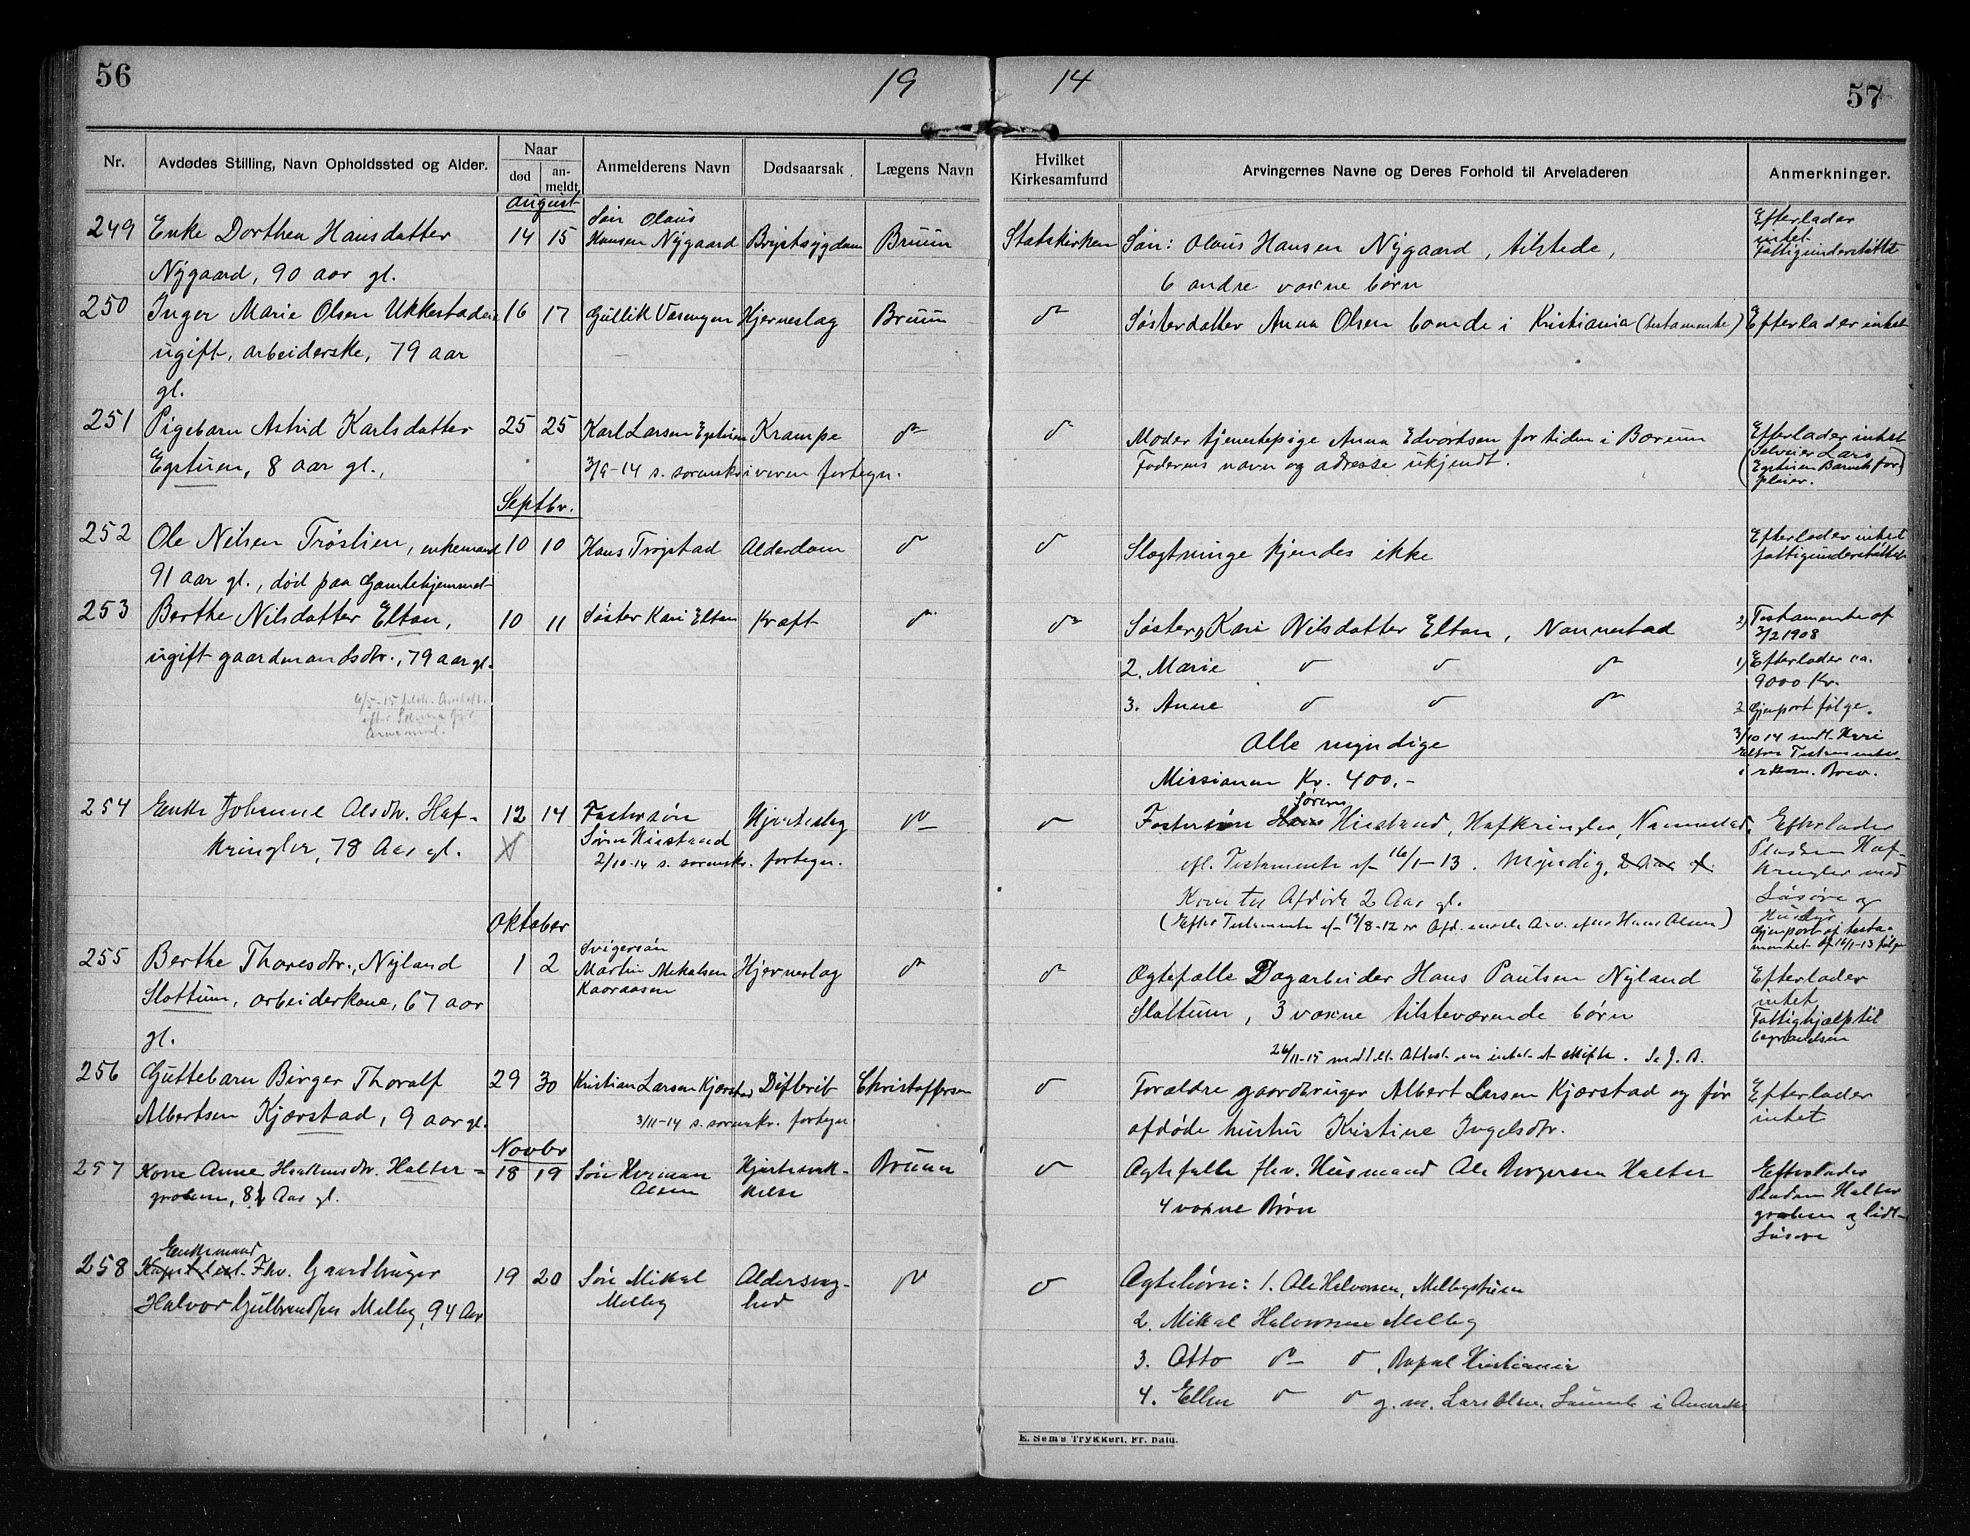 56
19
14
57
Nr.
Avdødes Stilling, Navn Opholdssted og Alder.
Naar
død
an-
meldt
Anmelderens Navn
Dødsaarsak
Lægens Navn
Hvilket
Kirkesamfund
Arvingernes Navne og Deres Forhold til Arveladeren
Anmerkninger.
August
249 Enke Dorthea Hansdatter
Nygaard, 90 aar gl.
14 15
Søn Olaus
Hansen Nygaard
Brystsygdom
Bruun
Statskirken
Søn: Olaus Hansen Nygaard, tilstede,
6 andre voxne børn
Efterlader
intet
Fattigunderstøttet
250 Inger Marie Olsen Ukkestad
ugift, arbeiderske, 79 aar
gl.
16 17
Gullik Vaengen
Hjerneslag
Bruun
Søsterdatter Anna Olsen boende i Kristiania (testamente)
Efterlader intet
251 Pigebarn Astrid Karlsdatter
Egstuen, 8 aar gl.,
25 25
Karl Larsen Egstuen
Krampe
3/9-14 s. sorenskriveren fortegn.
Moder tjenestepige Anna Edvardsen for tiden i Bærum
Faderens navn og adresse ukjendt.
Efterlader intet
Selveier Lars
Egstuen Barnets for
pleier.
Septbr.
252 Ole Nilsen Trøstien, enkemand
91 aar gl., død paa Gamlehjemmet
10 10
Hans Trøgstad
Alderdom
Slegtninge kjendes ikke
Efterlader intet
fattigunderstøttet
253 Berthe Nilsdatter Eltan,
ugift gaardmandsdtr., 79 aar gl.
10 11
Søster Kari Eltan
Kræft
Søster 1, Kari Nilsdatter Eltan, Nannestad
2. Marie
3. Anne
Alle myndige
Missionen Kr. 400.-
2) Testamente af
3/2 1908
1) Efterlader ca.
9000 Kr.
2 Gjenpart følge.
3/10 14 sendt Kari
Eltan Testamentet
i rekom. Brev.
254 Enke Johanne Olsdtr. Haf-
kringler, 78 Aar gl.
12 14
Fostersøn
Søren Hiestand
2/10-14 s. sorenskr. fortegn.
Hjerteslag
Søren
Fostersøn Hans Hiestand, Hafkringler, Nannestad,
efl. Testamente af 16/1-13. Myndig, 2 Aar gl.
Kom til Afdøde 2 Aar gl.
(Efter Testamente af 13/8-12 er Afd. eneste Arv. efter Hans Olsen)
Efterlader
Pladsen Haf-
kringler med
Løsøre og
Husdyr
Gjenpart af testa-
mentet af 16/1-13 følger
Oktober
255 Berthe Thoresdtr., Nyland
Slattum, arbeiderkone, 67 aar
gl.
1 2
Svigersøn
Martin Mikalsen
Kaaraasen
Hjerneslag
Ægtefælle Dagarbeider Hans Paulsen Nyland
Slattum, 3 voxne tilsteværende børn
26/11-15 meddelt Attest om intet at skifte. S. J. B.
Efterlader
intet
Fattighjælp til
begravelsen
256 Guttebarn Birger Thoralf
Albertsen Kjærstad, 9 aar gl.
29 30
Kristian Larsen Kjærstad
Difterit
3/11-14 s. sorenskr. fortegn.
Christoffersen
Forældre gaardbruger Albert Larsen Kjærstad og før
afdøde hustru Kristine Ingelsdtr.
Efterlader
intet
Novbr
257 Kone Anne Haakensdtr. Halter-
graben, 81 Aar gl.
18 19
Søn Herman
Olsen
Hjertesvæk-
kelse
Bruun
Ægtefælle fhv. Husmand Ole Borgersen Halter
4 voxne Børn
Efterlader
Pladsen Halter
graben og lidt
Løsøre
258 Enkemand
Fhv. Gaardbruger
Halvor Gulbrandsen Melby, 94 Aar
19 20
Søn Mikal
Melby
Aldersvag-
hed
Ægtebørn: 1. Ole Halvorsen, Melbystuen
2. Mikal Halvorsen Melby
3. Otto
Kristiania
4. Ellen
g. m. Lars Olsen i Amerika
E. Sem's Trykkeri, Fr.hald.